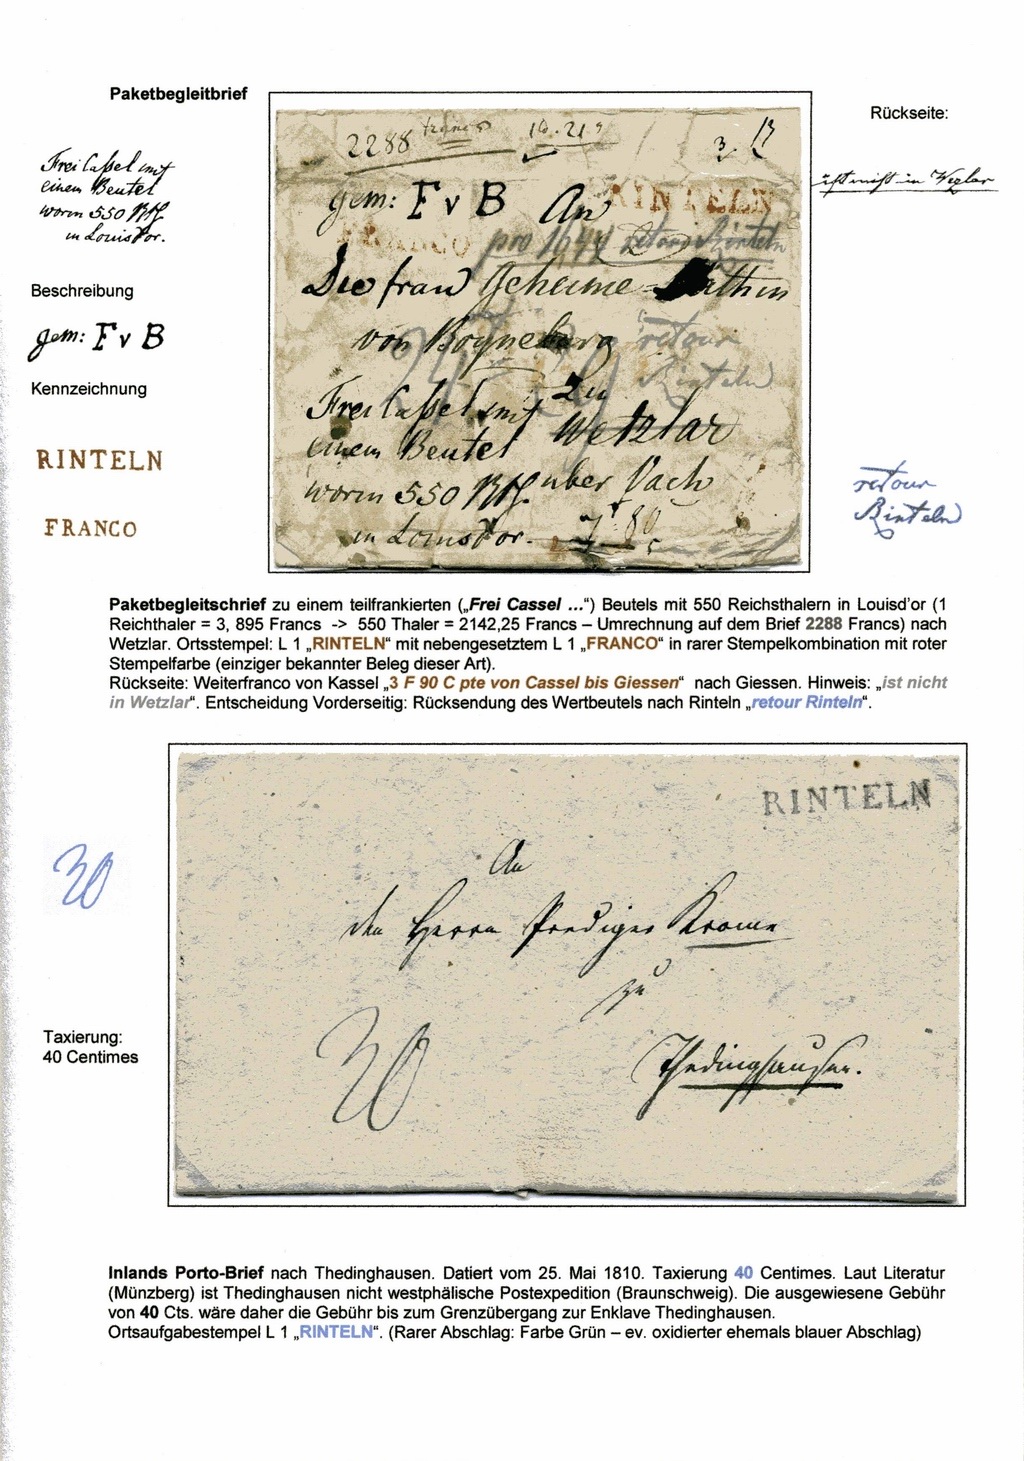 Paketbegleitbrief
Rückseite:
Frei Caßel mit
einem Beutel
worin 550 Rthl.
in Louisd'or.
ist nicht in Wezlar
Beschreibung
gem: F v B
Kennzeichnung
RINTELN
FRANCO
2288 franco
3.
gem: F v B An
RINTELN
FRANCO pro 1644 retour Rinteln
Die frau Geheime Räthin
von Boyneburg
retour
Rinteln
zu
Frei Caßel mit
Wetzlar
einem Beutel
über Vach
worin 550 Rthl.
in Louisd'or.
retour
Rinteln
Paketbegleitschrief zu einem teilfrankierten („Frei Cassel ...“) Beutels mit 550 Reichsthalern in Louisd'or (1
Reichthaler = 3, 895 Francs -> 550 Thaler = 2142,25 Francs – Umrechnung auf dem Brief 2288 Francs) nach
Wetzlar. Ortsstempel: L 1 „RINTELN“ mit nebengesetztem L 1 „FRANCO“ in rarer Stempelkombination mit roter
Stempelfarbe (einziger bekannter Beleg dieser Art).
Rückseite: Weiterfranco von Kassel „3 F 90 C pte von Cassel bis Giessen“ nach Giessen. Hinweis: „ist nicht
in Wetzlar“. Entscheidung Vorderseitig: Rücksendung des Wertbeutels nach Rinteln „retour Rinteln“.
RINTELN
An
den Herrn Prediger Krome
zu
Thedinghausen.
40
40
Taxierung:
40 Centimes
Inlands Porto-Brief nach Thedinghausen. Datiert vom 25. Mai 1810. Taxierung 40 Centimes. Laut Literatur
(Münzberg) ist Thedinghausen nicht westphälische Postexpedition (Braunschweig). Die ausgewiesene Gebühr
von 40 Cts. wäre daher die Gebühr bis zum Grenzübergang zur Enklave Thedinghausen.
Ortsaufgabestempel L 1 „RINTELN“. (Rarer Abschlag: Farbe Grün – ev. oxidierter ehemals blauer Abschlag)